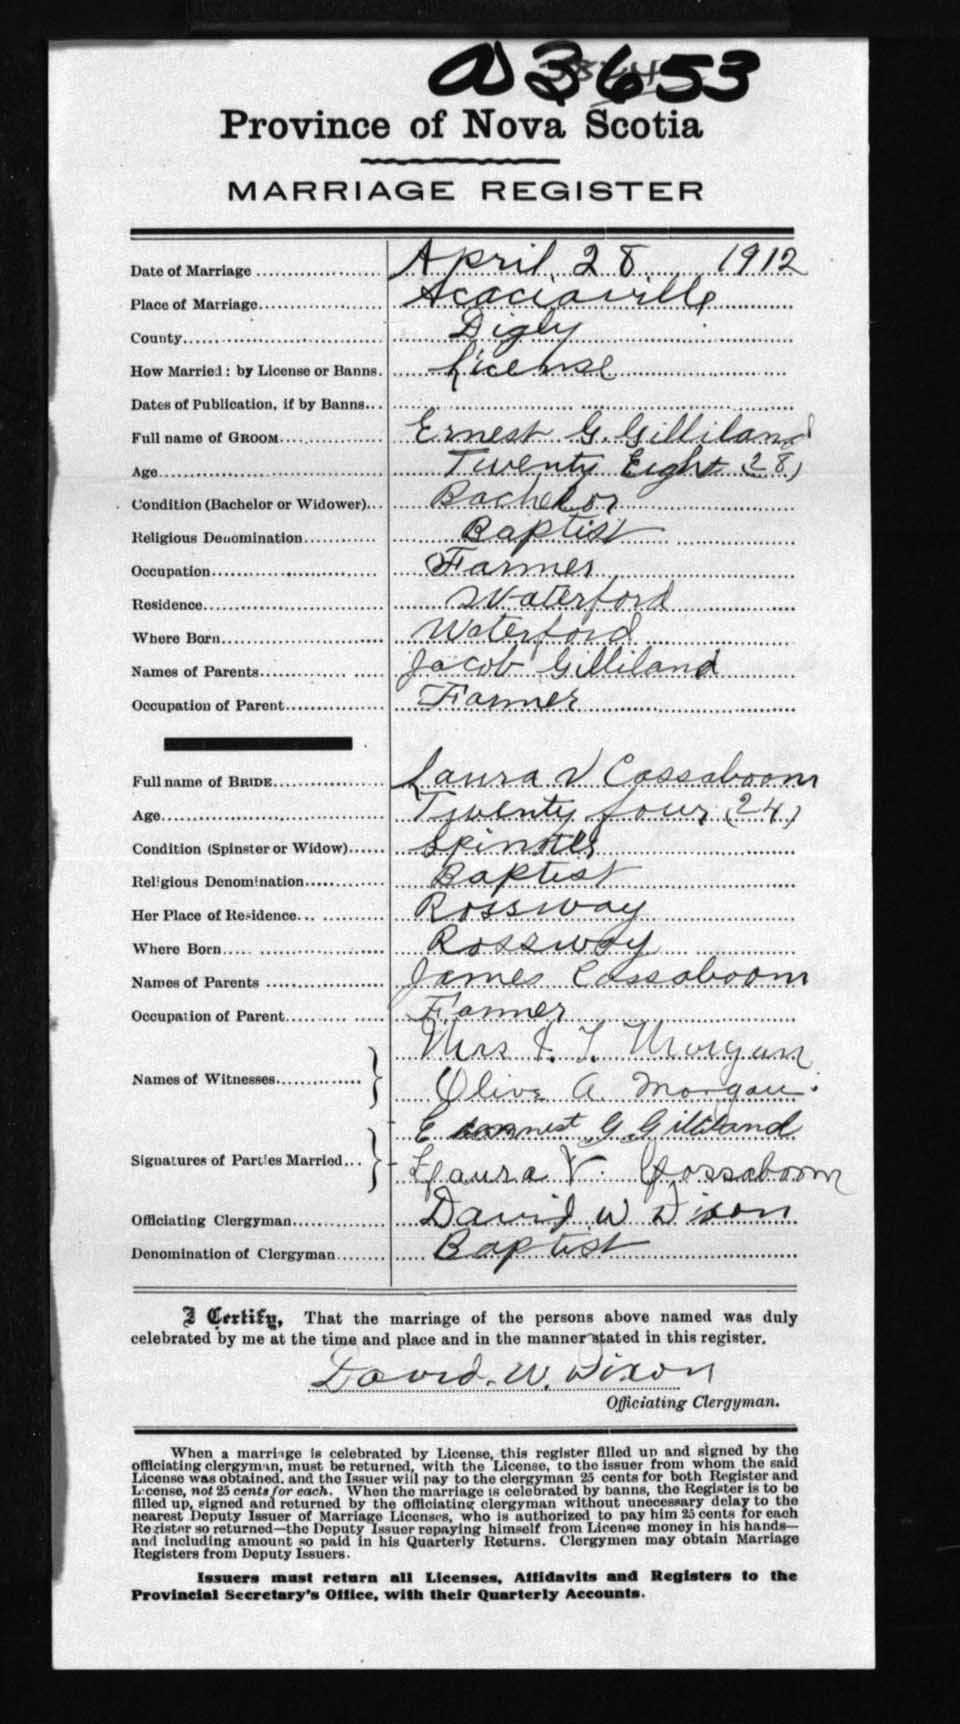 a 3653
Province of Nova Scotia
MARRIAGE REGISTER
Date of Marriage ................... April 28 1912
Place of Marriage................... Acaciaville
County.............................. Digby
How Married: by License or Banns. License
Dates of Publication, if by Banns...
Full name of GROOM............... Ernest G. Gilliland
Age................................... Twenty Eight (28)
Condition (Bachelor or Widower)... Bachelor
Religious Denomination............ Baptist
Occupation........................... Farmer
Residence............................. Waterford
Where Born.......................... Waterford
Names of Parents................... Jacob Gilliland
Occupation of Parent............... Farmer
Full name of BRIDE................. Laura V Cassaboom
Age................................... Twenty four (24)
Condition (Spinster or Widow)...... Spinster
Religious Denomination............ Baptist
Her Place of Residence............ Rossway
Where Born.......................... Rossway
Names of Parents ................... James Cassaboom
Occupation of Parent............... Farmer
Names of Witnesses.............. } Mrs I. T. Morgan
Olive A. Morgan.
Signatures of Parties Married... } Earnest G Gilliland
Laura V. Cossaboom
Officiating Clergyman.............. David W Dixon
Denomination of Clergyman........ Baptist
I Certify, That the marriage of the persons above named was duly
celebrated by me at the time and place and in the manner stated in this register.
David. W. Dixon
Officiating Clergyman.
When a marriage is celebrated by License, this register filled up and signed by the
officiating clergyman, must be returned, with the License, to the issuer from whom the said
License was obtained, and the Issuer will pay to the clergyman 25 cents for both Register and
License, not 25 cents for each. When the marriage is celebrated by banns, the Register is to be
filled up, signed and returned by the officiating clergyman without unecessary delay to the
nearest Deputy Issuer of Marriage Licenses, who is authorized to pay him 25 cents for each
Register so returned—the Deputy Issuer repaying himself from License money in his hands—
and including amount so paid in his Quarterly Returns. Clergymen may obtain Marriage
Registers from Deputy Issuers.
Issuers must return all Licenses, Affidavits and Registers to the
Provincial Secretary's Office, with their Quarterly Accounts.